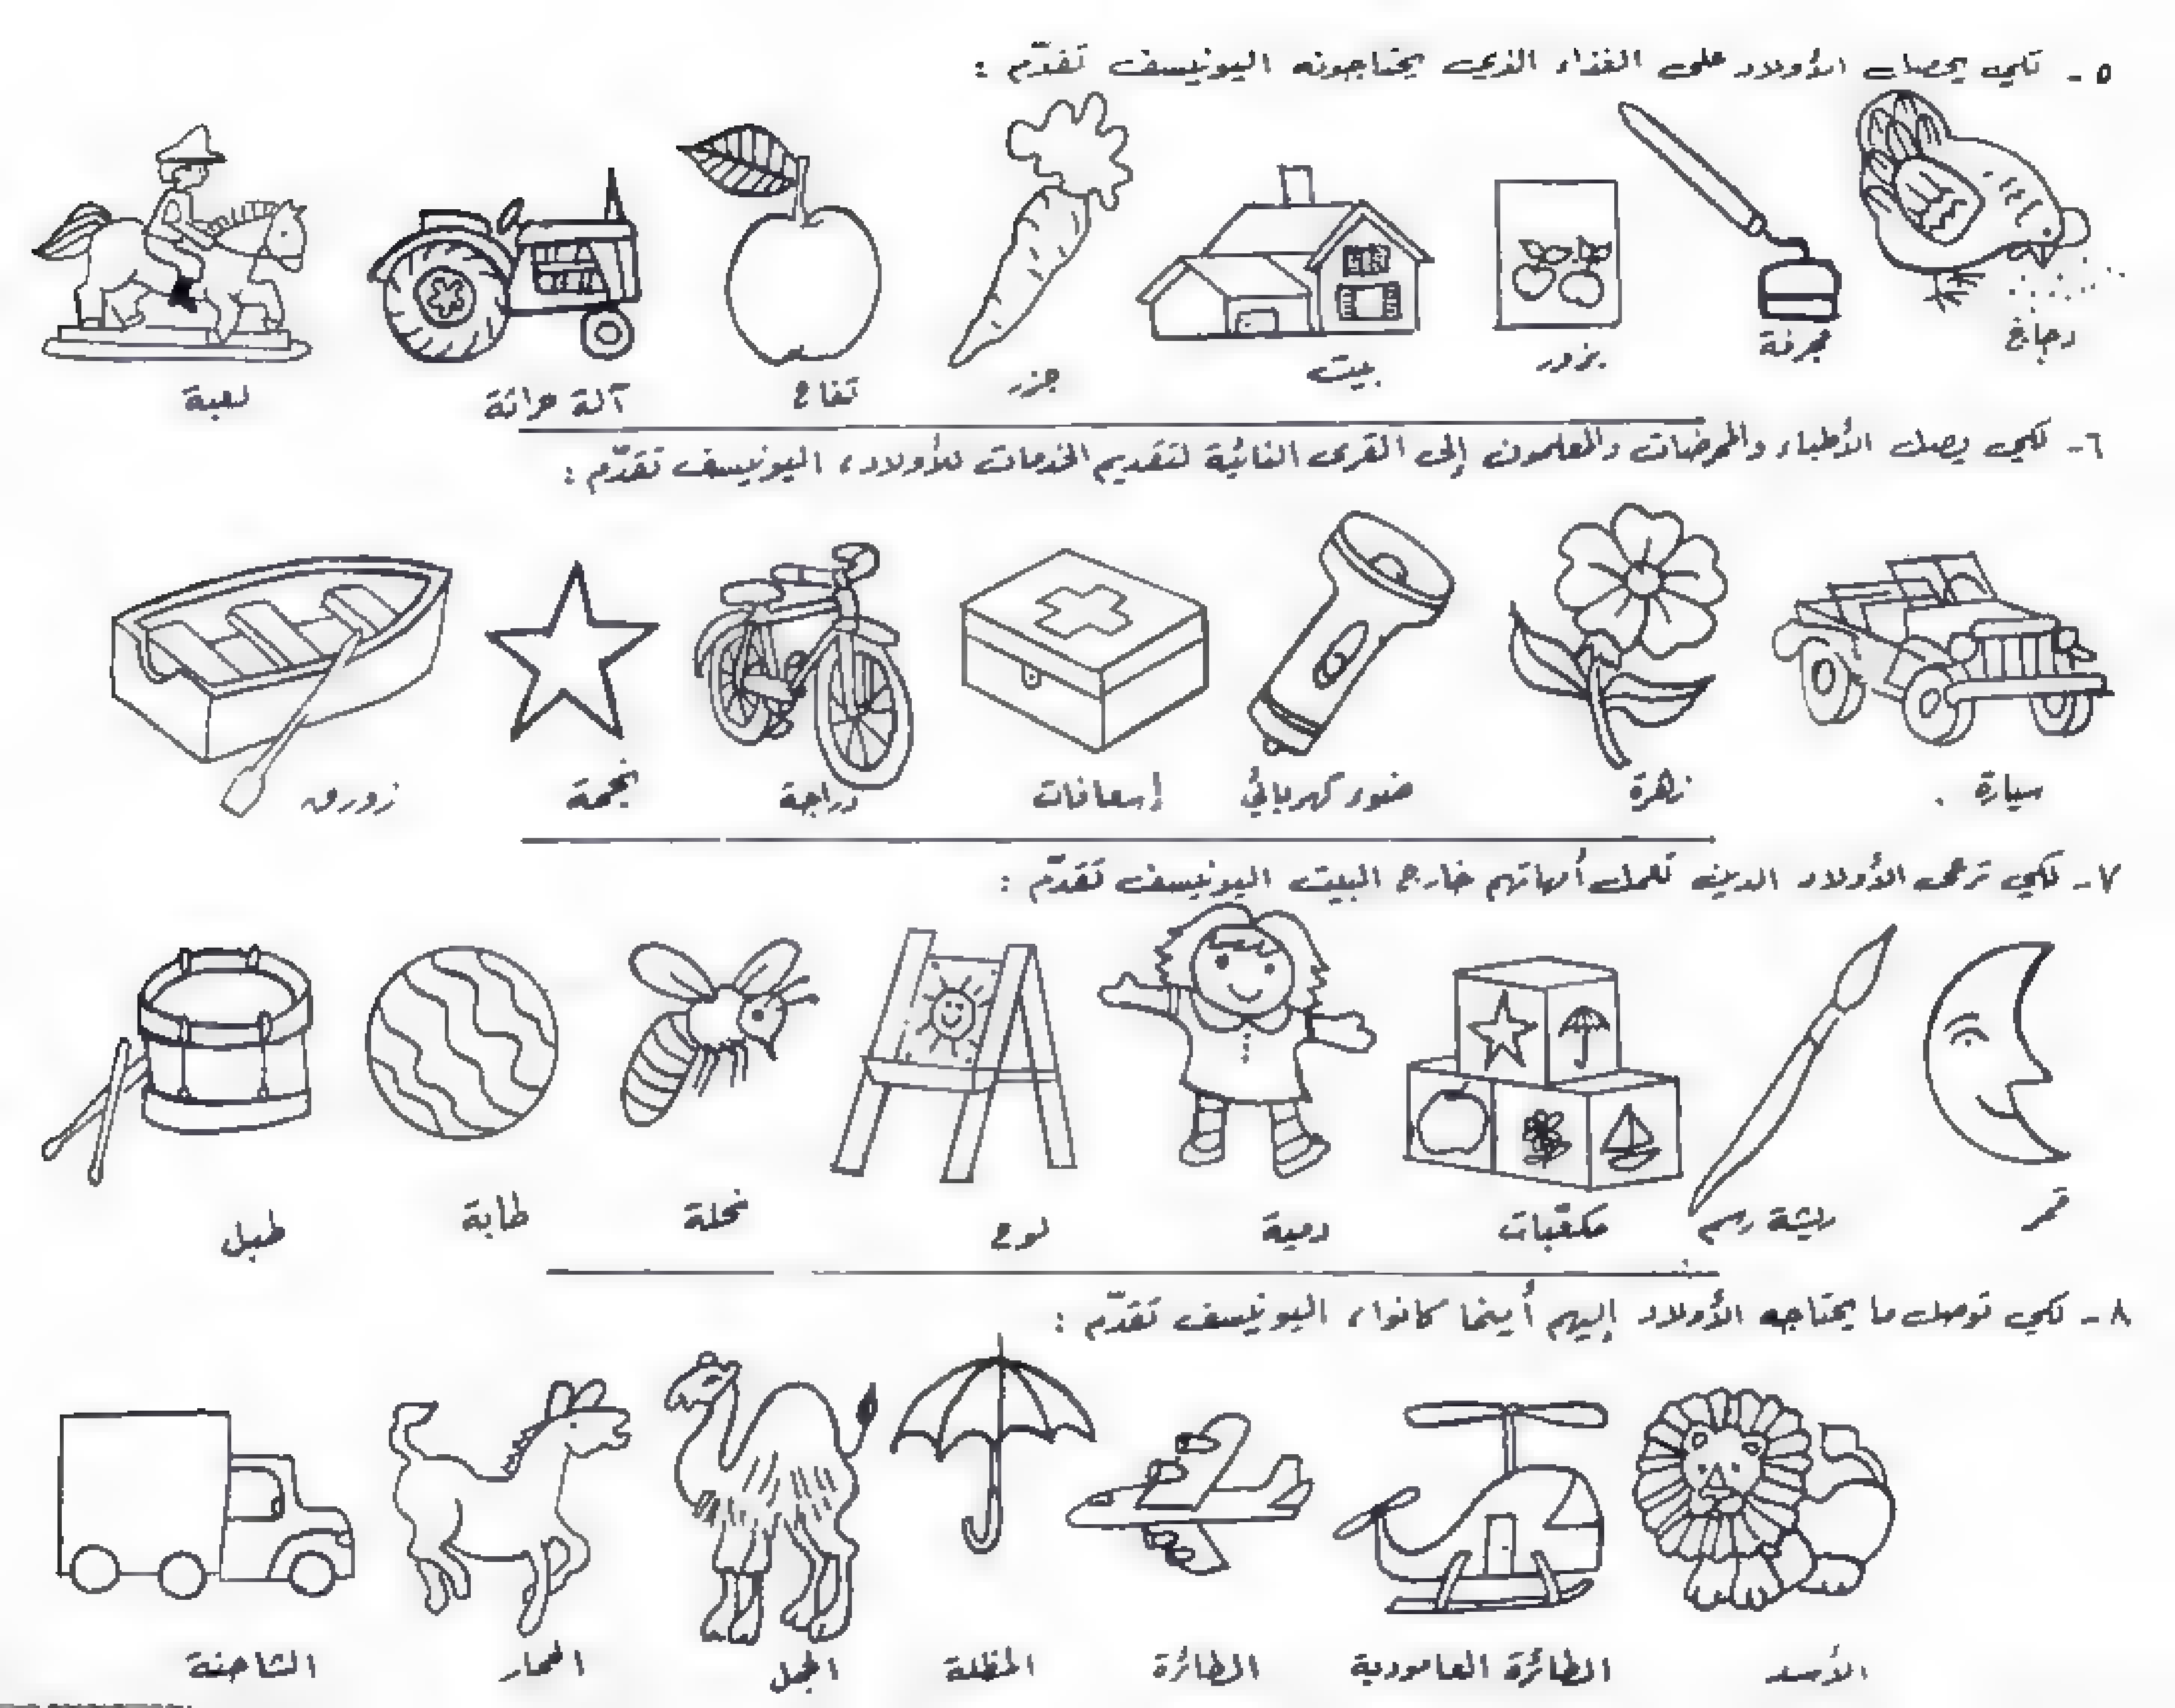 ٥- لكي يحصل الأولاد على الغذاء الذي يحتاجونه اليونيسف تقدّم :
دجاج مجرفة بزور بيت جزر تفاح آلة حراثة لعبة
٦- لكي يصل الأطباء والممرضات والمعلمون إلى القرى النائية لتقديم الخدمات للأولاد، اليونيسف تقدّم :
سيارة زهرة ضوء كهربائي إسعافات دراجة نجمة زورق
٧- لكي ترعى الأولاد الذين تعمل أمهاتهم خارج البيت اليونيسف تقدّم :
قمر ريشة رسم مكعّبات دمية لوح نحلة طابة طبل
٨- لكي توصل ما يحتاجه الأولاد إليهم أينما كانوا، اليونيسف تقدّم :
الأسد الطائرة العامودية الطائرة المظلة الجمل الحمار الشاحنة